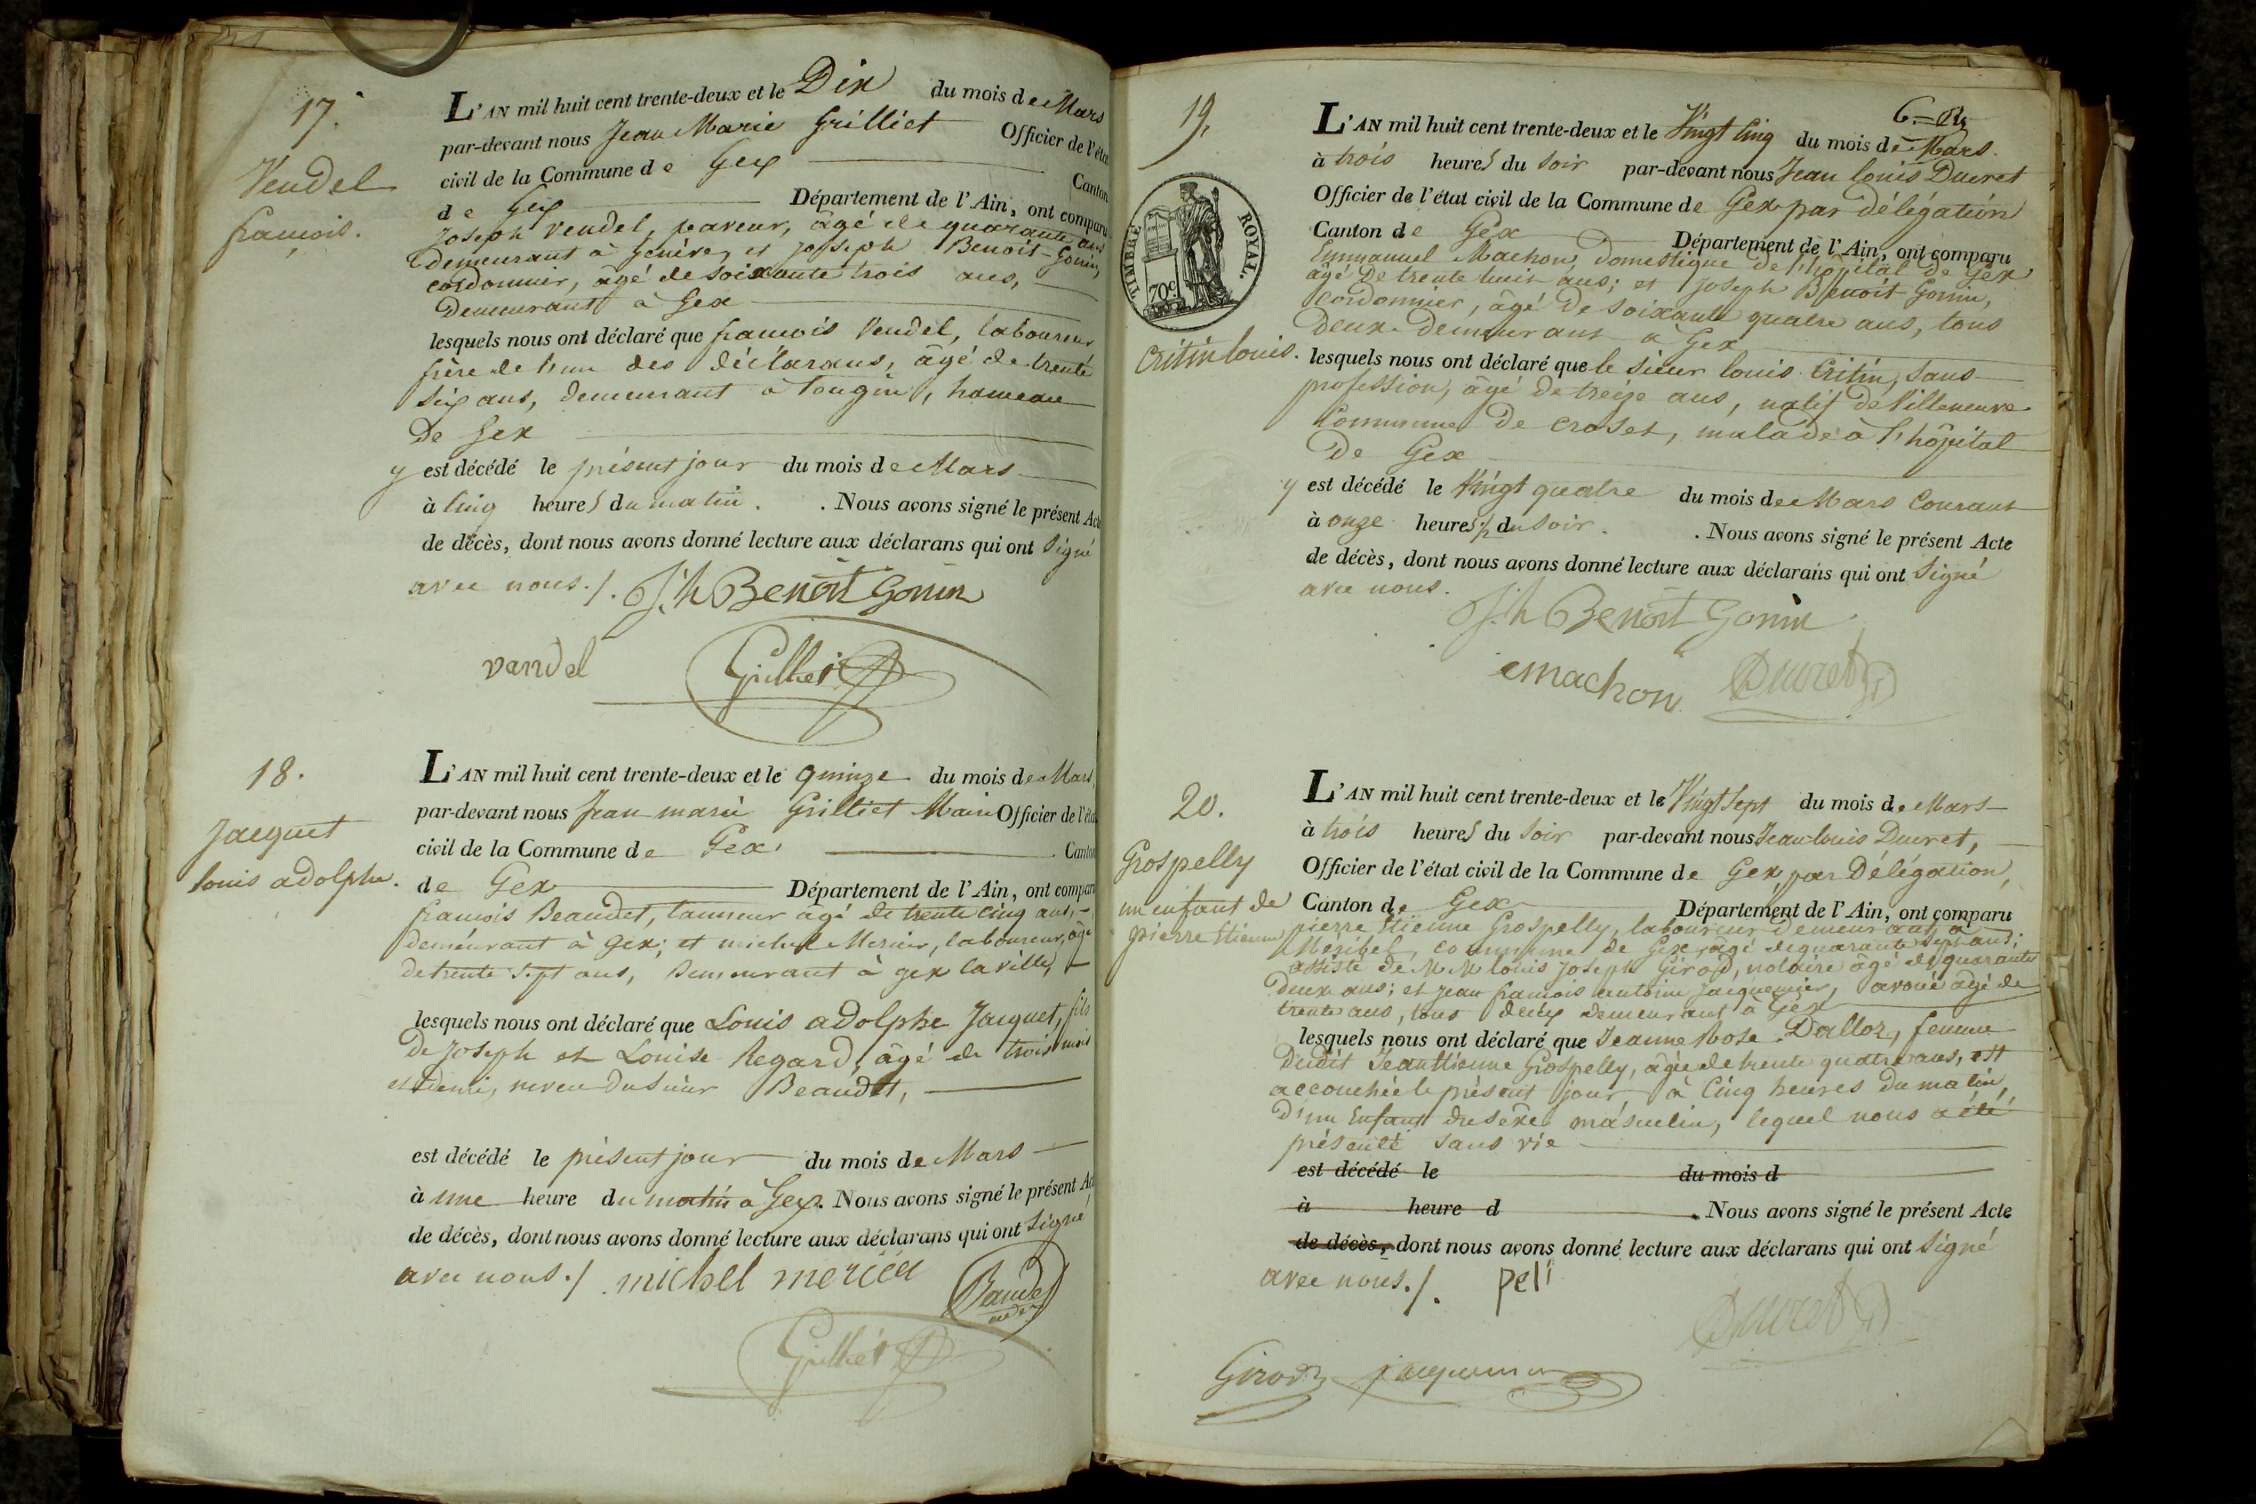 17.
Vendel
françois.
L'AN mil huit cent trente-deux et le Dix du mois de Mars
par-devant nous Jean Marie Grilliet Officier de l'état
civil de la Commune de Gex Canton
de Gex Département de l'Ain, ont comparu
Joseph Vendel, paveur, âgé de quarante ans
demeurant à Genève, et joseph Benoit-Gonin,
cordonnier, âgé de soixante trois ans,
demeurant à Gex
lesquels nous ont déclaré que françois Vendel, laboureur
frère de l'un des déclarans, âgé de trente
six ans, demeurant à Tougin, hameau
de Gex
y est décédé le présent jour du mois de Mars
à cinq heures du matin. . Nous avons signé le présent Acte
de décès, dont nous avons donné lecture aux déclarans qui ont signé
avec nous./. Jh Benoit Gonin
vandel Grilliet
18.
Jacquet
louis adolphe.
L'AN mil huit cent trente-deux et le quinze du mois de Mars,
par-devant nous Jean marie Grilliet Maire Officier de l'état
civil de la Commune de Gex. Canton
de Gex Département de l'Ain, ont comparu
françois Beaudet, tanneur âgé de trente cinq ans,
demeurant à Gex; et michel Mercier, laboureur, âgé
de trente sept ans, demeurant à gex la ville,
lesquels nous ont déclaré que Louis adolphe Jacquet, fils
de Joseph et Louise Regard, âgé de trois mois
et demi, neveu du sieur Beaudet,
est décédé le présent jour du mois de Mars
à une heure du matin à Gex. Nous avons signé le présent Acte
de décès, dont nous avons donné lecture aux déclarans qui ont signé
avec nous./ michel merciér Baudet
Grilliet
19.
TIMBRE ROYAL.
70c
Critin louis.
L'AN mil huit cent trente-deux et le Vingt Cinq du mois de Mars.
à trois heures du soir par-devant nous Jean louis Ducret
Officier de l'état civil de la Commune de Gex par délégation
Canton de Gex Département de l'Ain, ont comparu
Emmanuel Machon, domestique de l'hôpital de Gex
âgé de trente huit ans; et joseph Benoit Gonin,
cordonnier, âgé de soixante quatre ans, tous
deux demeurant à Gex
lesquels nous ont déclaré que le sieur louis Critin, sans
profession, âgé de treize ans, natif de Villeneuve
Commune de Croset, malade à l'hôpital
de Gex
y est décédé le Vingt quatre du mois de Mars Courant
à onze heures du soir. . Nous avons signé le présent Acte
de décès, dont nous avons donné lecture aux déclarans qui ont signé
avec nous.
Jh Benoit Gonin
emachon Ducret
20.
Grospelly
un enfant de
pierre Etienne
L'AN mil huit cent trente-deux et le Vingt Sept du mois de Mars
à trois heures du soir par-devant nous Jean louis Ducret,
Officier de l'état civil de la Commune de Gex, par Délégation,
Canton de Gex Département de l'Ain, ont comparu
pierre Etienne Grospelly, laboureur demeurant à
Meribel, commune de Gex, âgé de quarante sept ans;
assisté de M M louis Joseph Girod, notaire âgé de quarante
deux ans; et Jean françois antoine Jacquemier, avoué âgé de
trente ans, tous deux demeurant à Gex
lesquels nous ont déclaré que Jeanne Rose Dalloz, femme
dudit Jean Etienne Grospelly, âgée de trente quatre ans, est
accouchée le présent jour, à Cinq heures du matin,
d'un Enfant du sexe masculin, lequel nous a été
présenté sans vie
est décédé le du mois d
à heure d . Nous avons signé le présent Acte
de décès, dont nous avons donné lecture aux déclarans qui ont signé
avec nous./. peli
Ducret
Girod Jacquemier